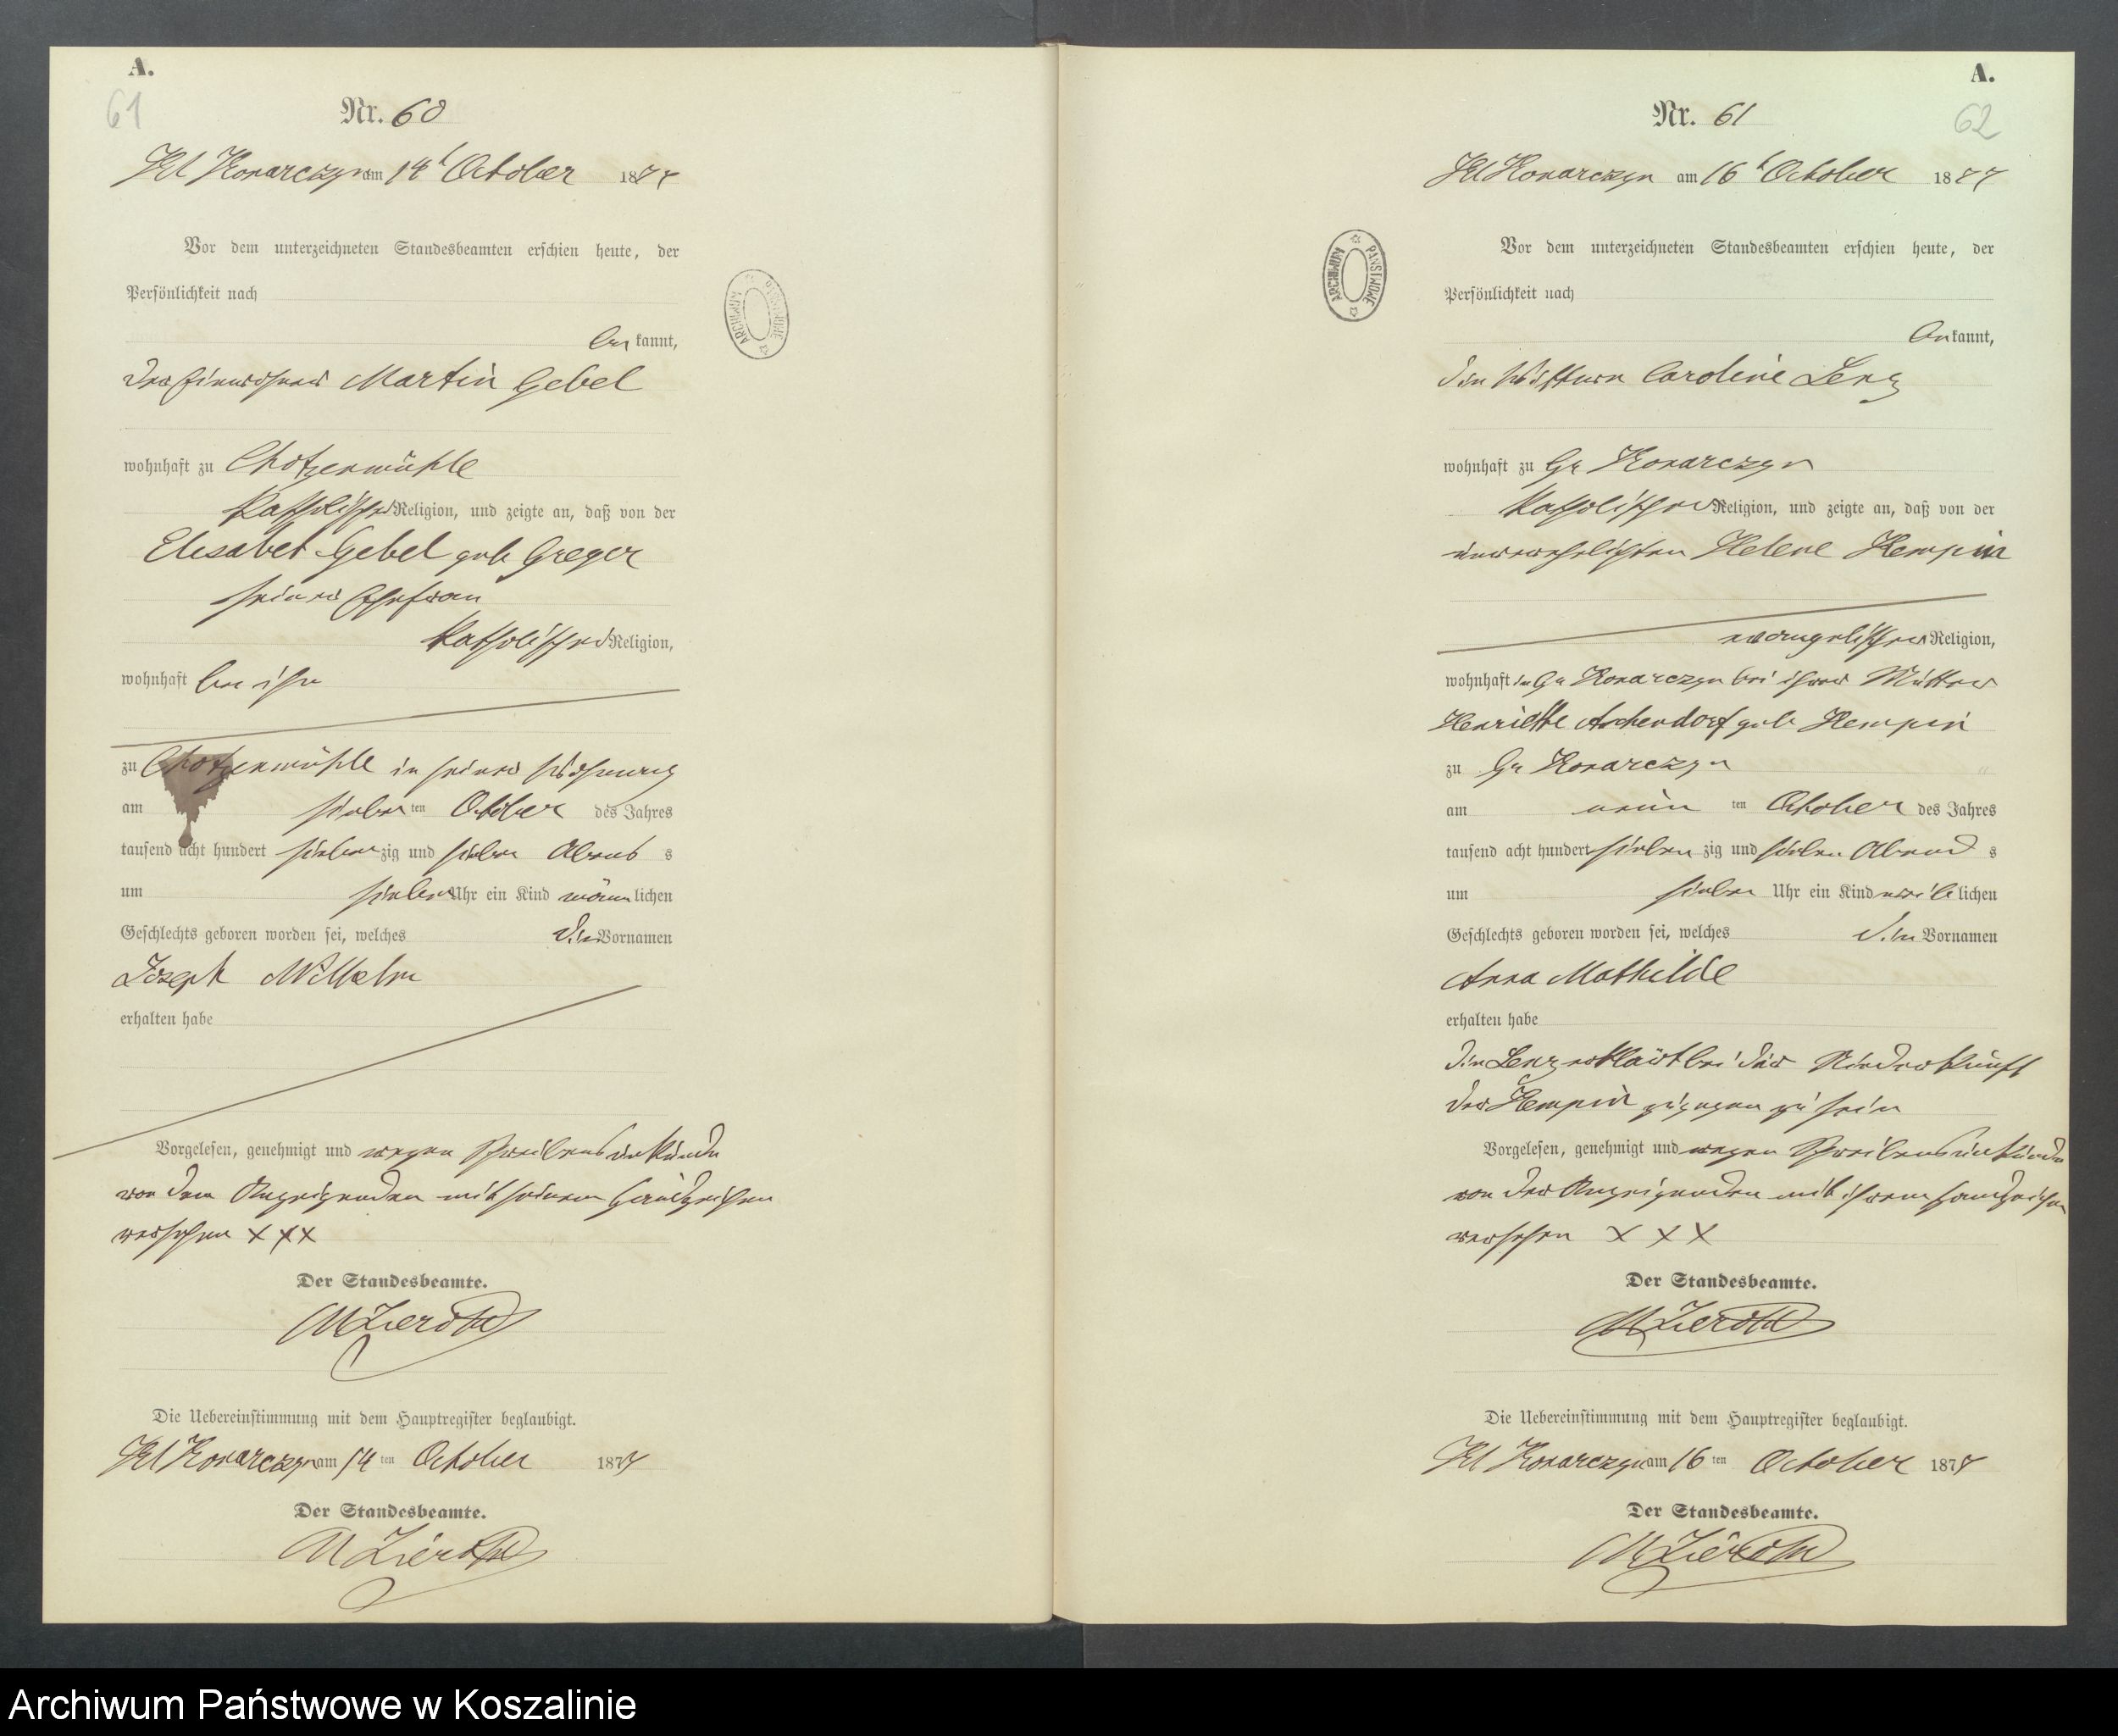 A.
61
Nr. 60
Kl Konarczyn am 14t October 1877
Vor dem unterzeichneten Standesbeamten erschien heute, der
Persönlichkeit nach
be kannt,
der Einwohner Martin Gebel
wohnhaft zu Chotzenmühle
katholischer Religion, und zeigte an, daß von der
Elisabet Gebel geb Greger
seiner Ehefrau
katholischer Religion,
wohnhaft bei ihm
zu Chotzenmühle in seiner Wohnung
am sieben ten October des Jahres
tausend acht hundert sieben zig und sieben Abend s
um sieben Uhr ein Kind männ lichen
Geschlechts geboren worden sei, welches die Vornamen
Joseph Wilhelm
erhalten habe
Vorgelesen, genehmigt und wegen Schreibensunkunde
von dem Anzeigenden mit seinem Handzeichen
versehen XXX
Der Standesbeamte.
MZieroth
Die Uebereinstimmung mit dem Hauptregister beglaubigt.
Kl Konarczyn am 14 ten October 1877
Der Standesbeamte.
MZieroth
ARCHIWUM PAŃSTWOWE
A.
62
Nr. 61
Kl Konarczyn am 16t October 1877
Vor dem unterzeichneten Standesbeamten erschien heute, der
Persönlichkeit nach
be kannt,
die Wittwe Caroline Lenz
wohnhaft zu Gr Konarczyn
katholischer Religion, und zeigte an, daß von der
unverehelichten Helene Hempin
evangelischer Religion,
wohnhaft in Gr Konarczyn bei ihrer Mutter
Henriette Aschendorf geb Hempin
zu Gr Konarczyn
am neun ten October des Jahres
tausend acht hundert sieben zig und sieben Abend s
um sieben Uhr ein Kind weib lichen
Geschlechts geboren worden sei, welches die Vornamen
Anna Mathilde
erhalten habe
die Lenz erklärt bei der Niederkunft
der Hempin zugegen zu sein
Vorgelesen, genehmigt und wegen Schreibensunkunde
von der Anzeigenden mit ihrem Handzeichen
versehen X X X
Der Standesbeamte.
MZieroth
Die Uebereinstimmung mit dem Hauptregister beglaubigt.
Kl Konarczyn am 16 ten October 1877
Der Standesbeamte.
MZieroth
ARCHIWUM PAŃSTWOWE
Archiwum Państwowe w Koszalinie